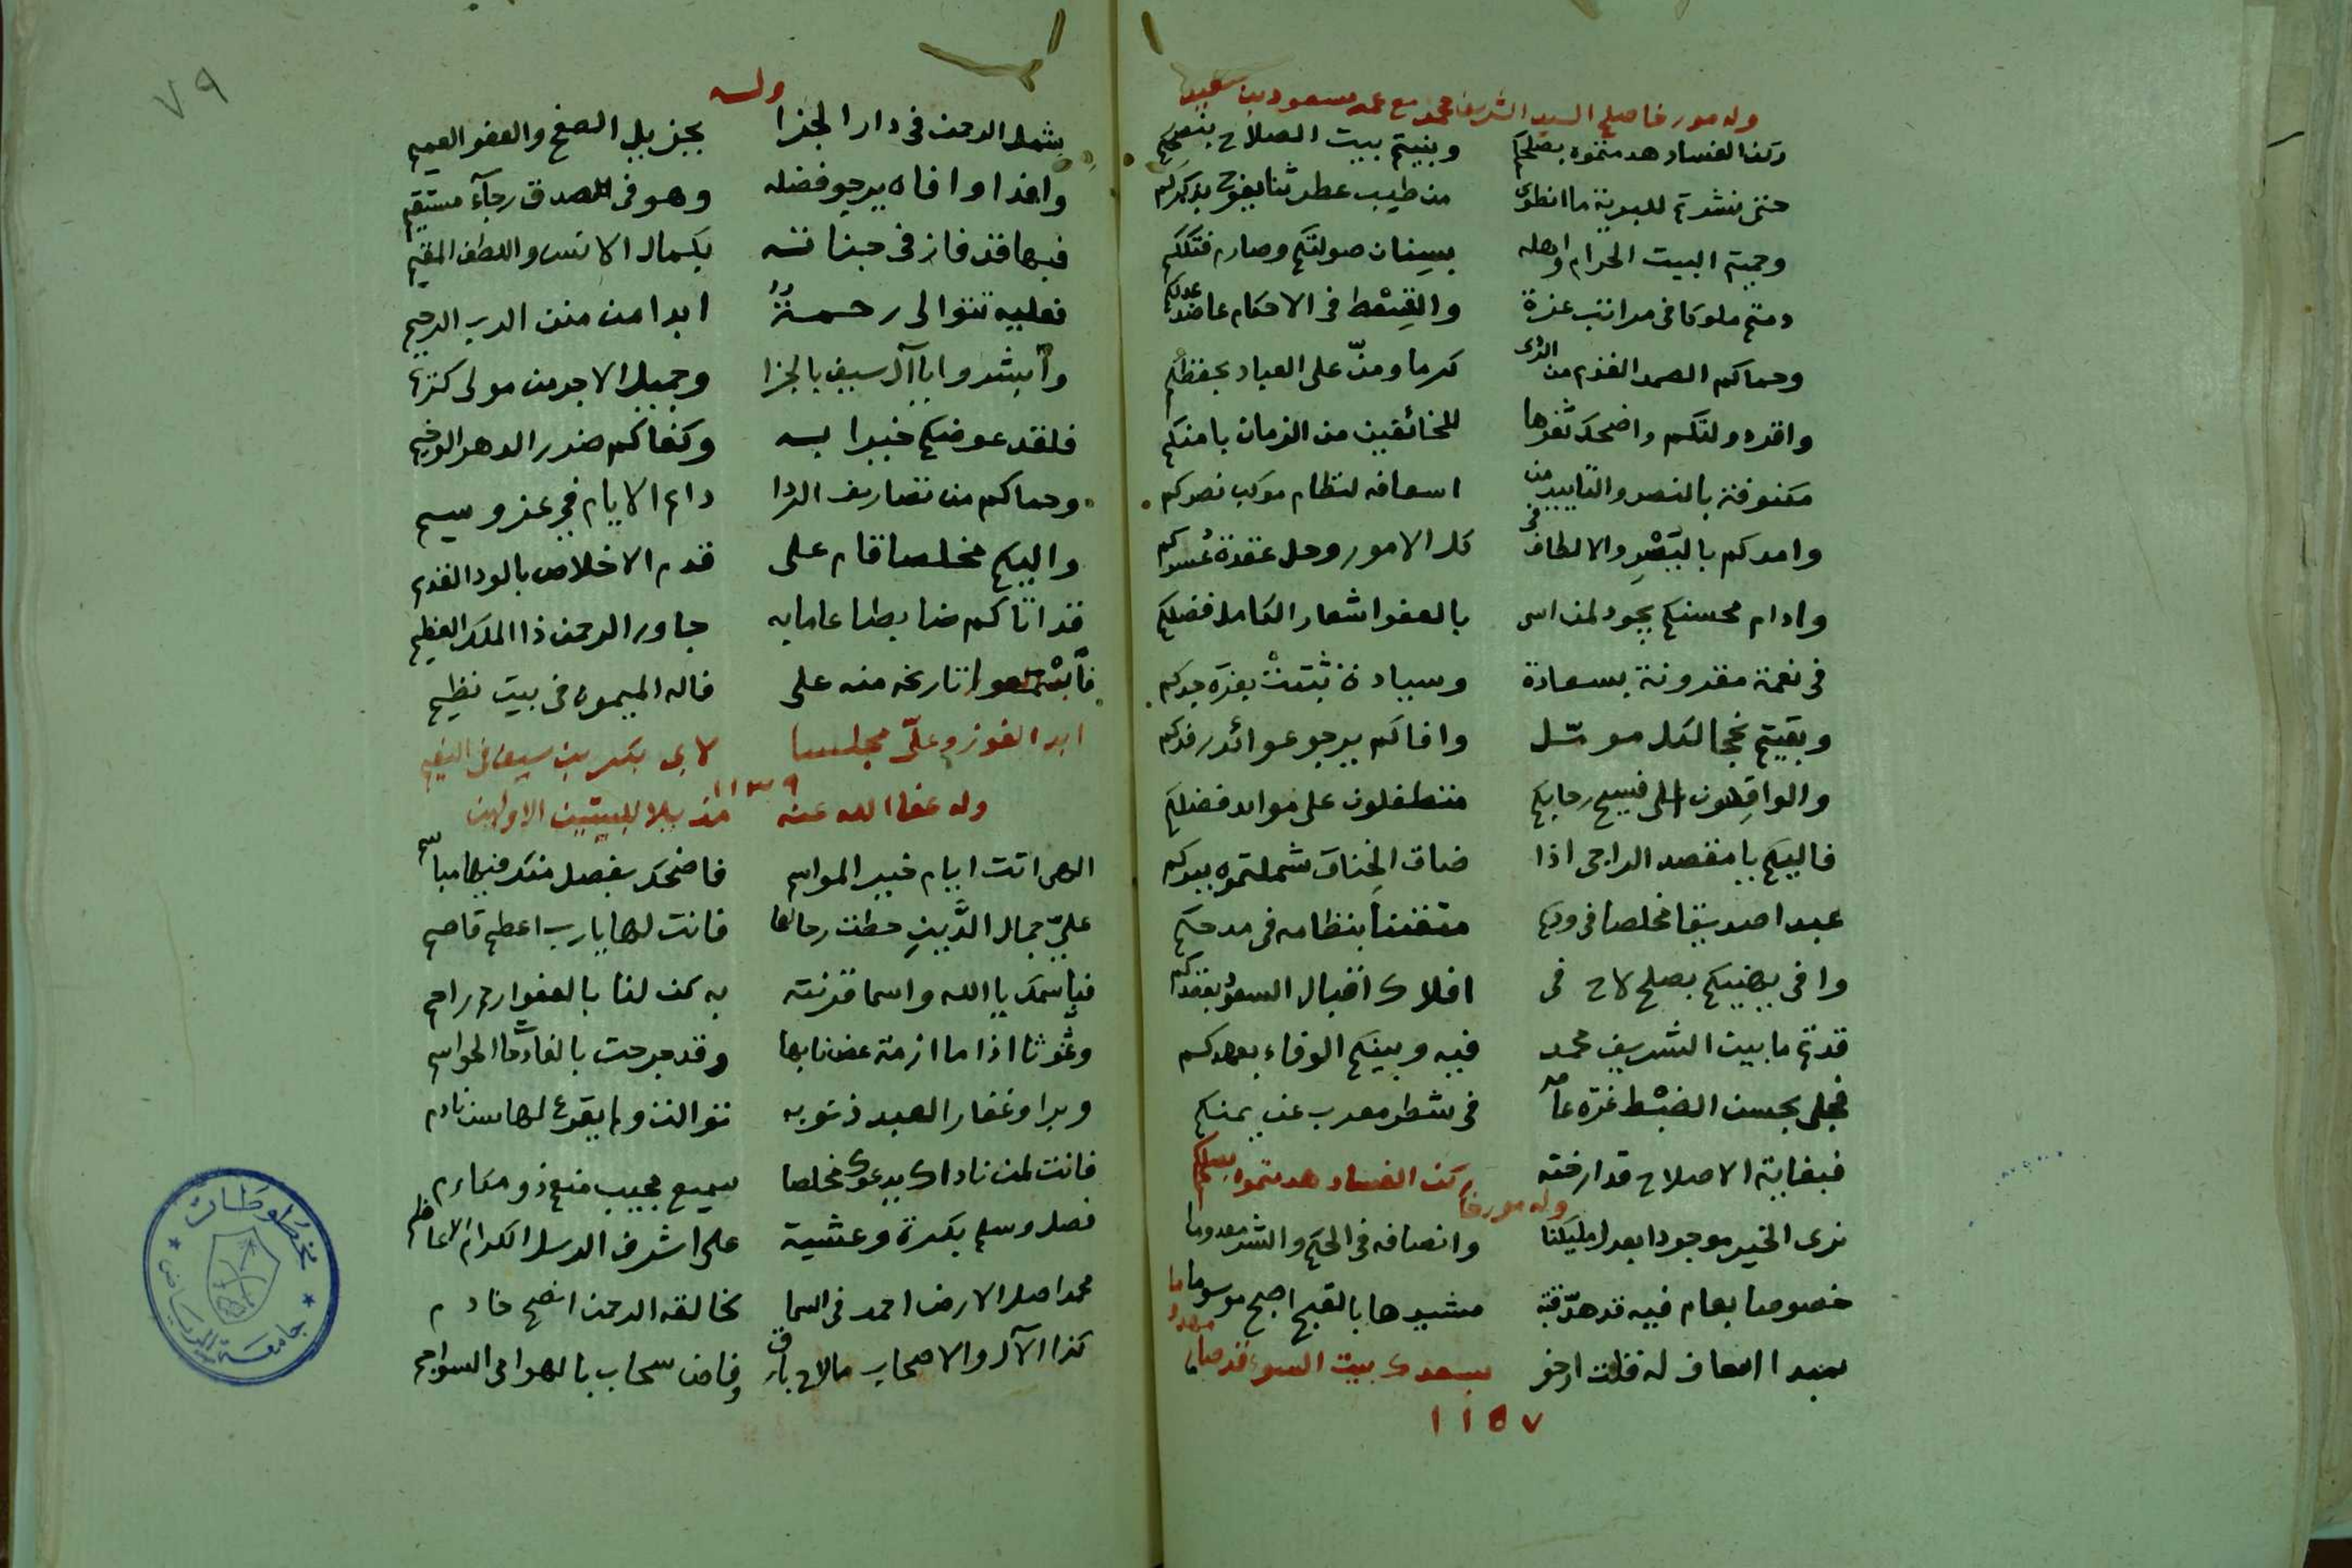 وله مورخا صلح السيد الشريف محمد مع عمه مسعود بن سعيد
ركن الفساد هدمتموه بصلحكم وبنيتم بيت الصلاح بنصحكم
حتى نشرتم للبرية ما انطوى من طيب عطر ثنا يفوح بذكركم
وحميتم البيت الحرام واهله بسنان صولتكم وصارم فتككم
دمتم ملوكا في مراتب عزة والقسط في الاحكام عاضد عدلكم
وحماكم الصمد القديم من الردى كرما ومنّ على العباد بحفظكم
واقر دولتكم واضحك ثغرها للخائفين من الزمان بامنكم
مكنوفة بالنصر والتاييد من اسعافه لنظام موكب نصركم
وامدكم باليسر والالطاف في كل الامور وحل عقدة عسركم
وادام محسنكم يجود لمن اسى بالعفو اشعار الكامل فضلكم
في نعمة مقرونة بسعادة وسيادة ثبتت بغرة جدكم
وبقيتم نجحا لكل مؤمّل وافاكم يرجو عوائد رفدكم
والوافدون الى فسيح رحابكم متطفلون على موائد فضلكم
فاليكم يا مقصد الراجي اذا ضاق الخناق شملتموه ببركم
عبدا صديقا مخلصا في ودكم متفننا بنظامه في مدحكم
وافى يهنيكم بصلح لاح في افلاك اقبال السعود بعقدكم
قدتم ما بين الشريف محمد فيه وبينكم الوفاء بعهدكم
فجلى بحسن الضبط غرة عامه في شطر معرب عن يمنكم
فبغاية الاصلاح قد ارخته ركن الفساد هدمتموه بصلحكم
وله مورخا
نرى الخير موجودا بعدل مليكنا وانصافه في الحكم والشر معدوما
خصوصا بعام فيه قد هدّ قبة مشيدها بالقبح اصبح موسوما
بمبدا انصاف له قلت ارخو بسعدك بيت السوء قد صار مهدوما
١١٥٧
٧٩
وله
يشمل الرحمن في دار الجزا بجزيل الصفح والعفو العميم
وافدا وافاه يرجو فضله وهو في الصدق رجآء مستقيم
فبها قد فاز في جناته بكمال الانس واللطف المقيم
فعليه تتوالى رحمة ابدا من منن الرب الرحيم
وأبشروا يا آل سيف بالجزا وجميل الاجر من مولى كريم
فلقد عوضكم خيرا به وكفاكم ضرر الدهر الوخيم
وحماكم من تصاريف الردا دائم الايام في عز وسيم
واليكم مخلصا قام على قدم الاخلاص بالود القديم
قد اتاكم ضابطا عاما به جاور الرحمن ذا الملك العظيم
فأسمعوا تاريخه منه على فاله الميمون في بيت نظيم
ابدا الفوز وعلّى مجلسا لابي بكر بن سيف في النعيم
١١٣٩
وله عفا الله عنه مذيلا للبيتين الاولين
الهي اتت ايام خير المواسم فاضحك بفضل منك فيها مباسم
عليّ جمال الدّين حطت رحالها فانت لها يا رب اعظم قاصم
فباسمك يا الله واسما قرنته به كن لنا بالعفو ارحم راحم
وغوثا اذا ما ازمة عض نابها وقد جرحت بالفادحات الحواسم
وبرا وغفار العبد ذنوبه توالت ولم يقرع لها سن نادم
فانت لمن ناداك يدعوك مخلصا سميع مجيب منعم ذو مكارم
فصل وسلم بكرة وعشية على اشرف الرسل الكرام الاعاظم
محمد اصل الارض احمد في السما لخالقه الرحمن انصح خادم
كذا الآل والاصحاب ما لاح بارق وفاض سحاب بالهوامي السواجم
مخطوطات
جامعة الرياض